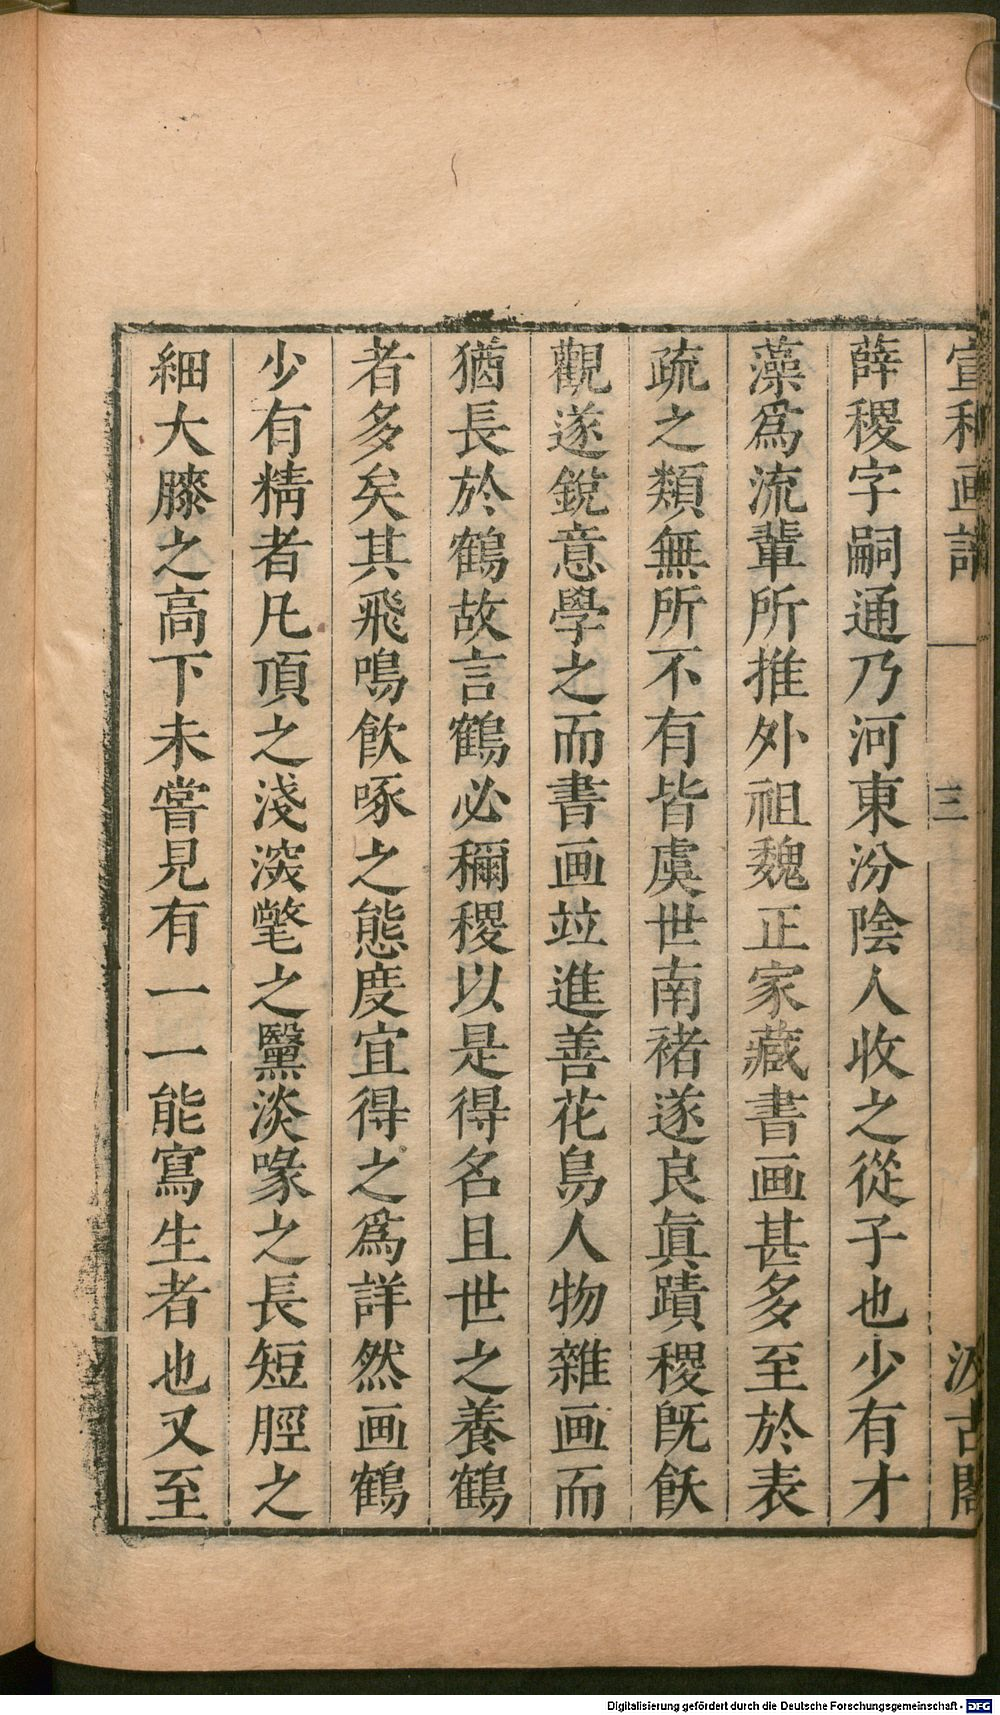 宣和画譜 三 汲古閣
薛稷字嗣通乃河東汾陰人收之從子也少有才
藻爲流輩所推外祖魏正家藏書画甚多至於表
疏之類無所不有皆虞世南褚遂良眞蹟稷旣飫
觀遂銳意學之而書画竝進善花鳥人物雜画而
猶長於鶴故言鶴必稱稷以是得名且世之養鶴
者多矣其飛鳴飮啄之態度宜得之爲詳然画鶴
少有精者凡頂之淺深氅之黳淡喙之長短脛之
細大膝之高下未嘗見有一一能寫生者也又至
Digitalisierung gefördert durch die Deutsche Forschungsgemeinschaft - DFG